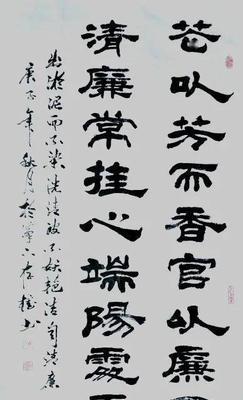 花以芳而香官以廉
清廉常挂心端陽
出淤泥而不染洗清波不妖艳洁自清廉
庚子年秋月於